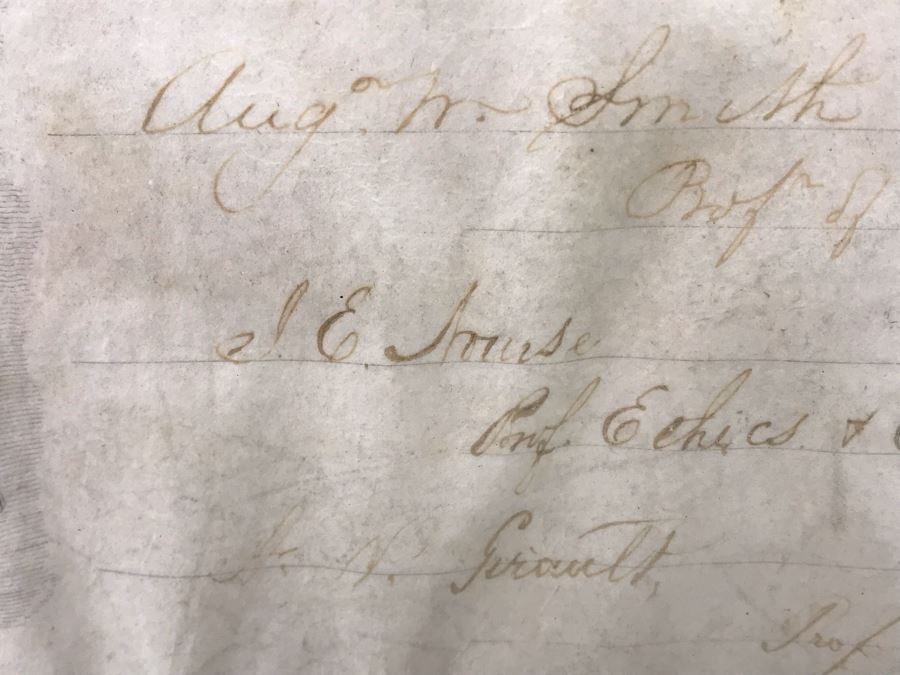 Augs. W. Smith
Profr. of
J E Nourse
Prof. Ethics &
A. N. Girault
Prof